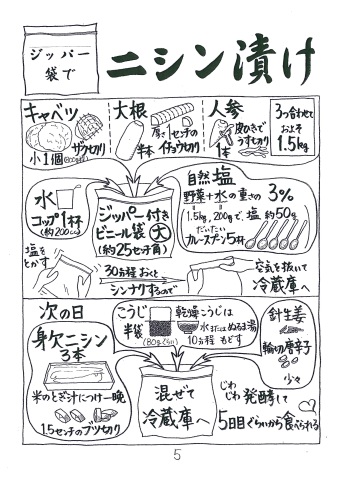 ジッパー
袋で
ニシン漬け
キャベツ
ザクセカリ
小1個
大根
厚さ1センチの
半本 イチョウ切り
人参
皮ひきで
うす切り
1本
3つ合わせて
およそ
1.5kg
水
コップ1杯
(約200cc)
ジッパー付き
ビニール袋 大
(約25センチ角)
自然塩
野菜+水の重さの 3%
1.5kg, 200gで、塩 約50g
だいたい
カレースプーン5杯
塩を
とかす
30分程おくと
シンナリするので
空気を抜いて
冷蔵庫へ
次の日
身欠ニシン
3本
米のとぎ汁につけ一晩
1.5センチのブツ切り
こうじ
半袋
(80gくらい)
乾燥こうじは
水またはぬるま湯
10分程 もどす
針生姜
輪切唐辛子
少々
混ぜて
冷蔵庫へ
じわ
じわ 発酵して
5日目ぐらいから食べられる
5